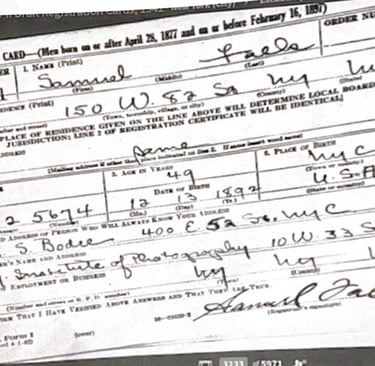 Draft Registration Cards
CARD—(Men born on or after April 28, 1877 and on or before February 16, 1897)
1. NAME (Print) ORDER NU
Samuel Falls
(First) (Middle) (Last)
(Print)
150 W. 82 St NY
(Town, township, village, or city) (County)
PLACE OF RESIDENCE GIVEN ON THE LINE ABOVE WILL DETERMINE LOCAL BOARD
JURISDICTION; LINE 2 OF REGISTRATION CERTIFICATE WILL BE IDENTICAL]
Same
[Mailing address if other than place indicated on line 2. If same insert word same]
5. AGE IN YEARS 6. PLACE OF BIRTH
49 NYC
DATE OF BIRTH (Town or county)
2 5674 12 13 1892 U.S.A
(Mo.) (Day) (Yr.) (State or country)
ADDRESS OF PERSON WHO WILL ALWAYS KNOW YOUR ADDRESS
S. Bodie 400 E 52 St. NYC
NAME AND ADDRESS
Institute of Photography 10 W. 33 S
EMPLOYMENT OR BUSINESS
NY NY
(Number and street or R. F. D. number) (Town) (County)
FIRM THAT I HAVE VERIFIED ABOVE ANSWERS AND THAT THEY ARE TRUE.
Samuel
Form 1 (over) (Registrant's signature)
3233 of 5971